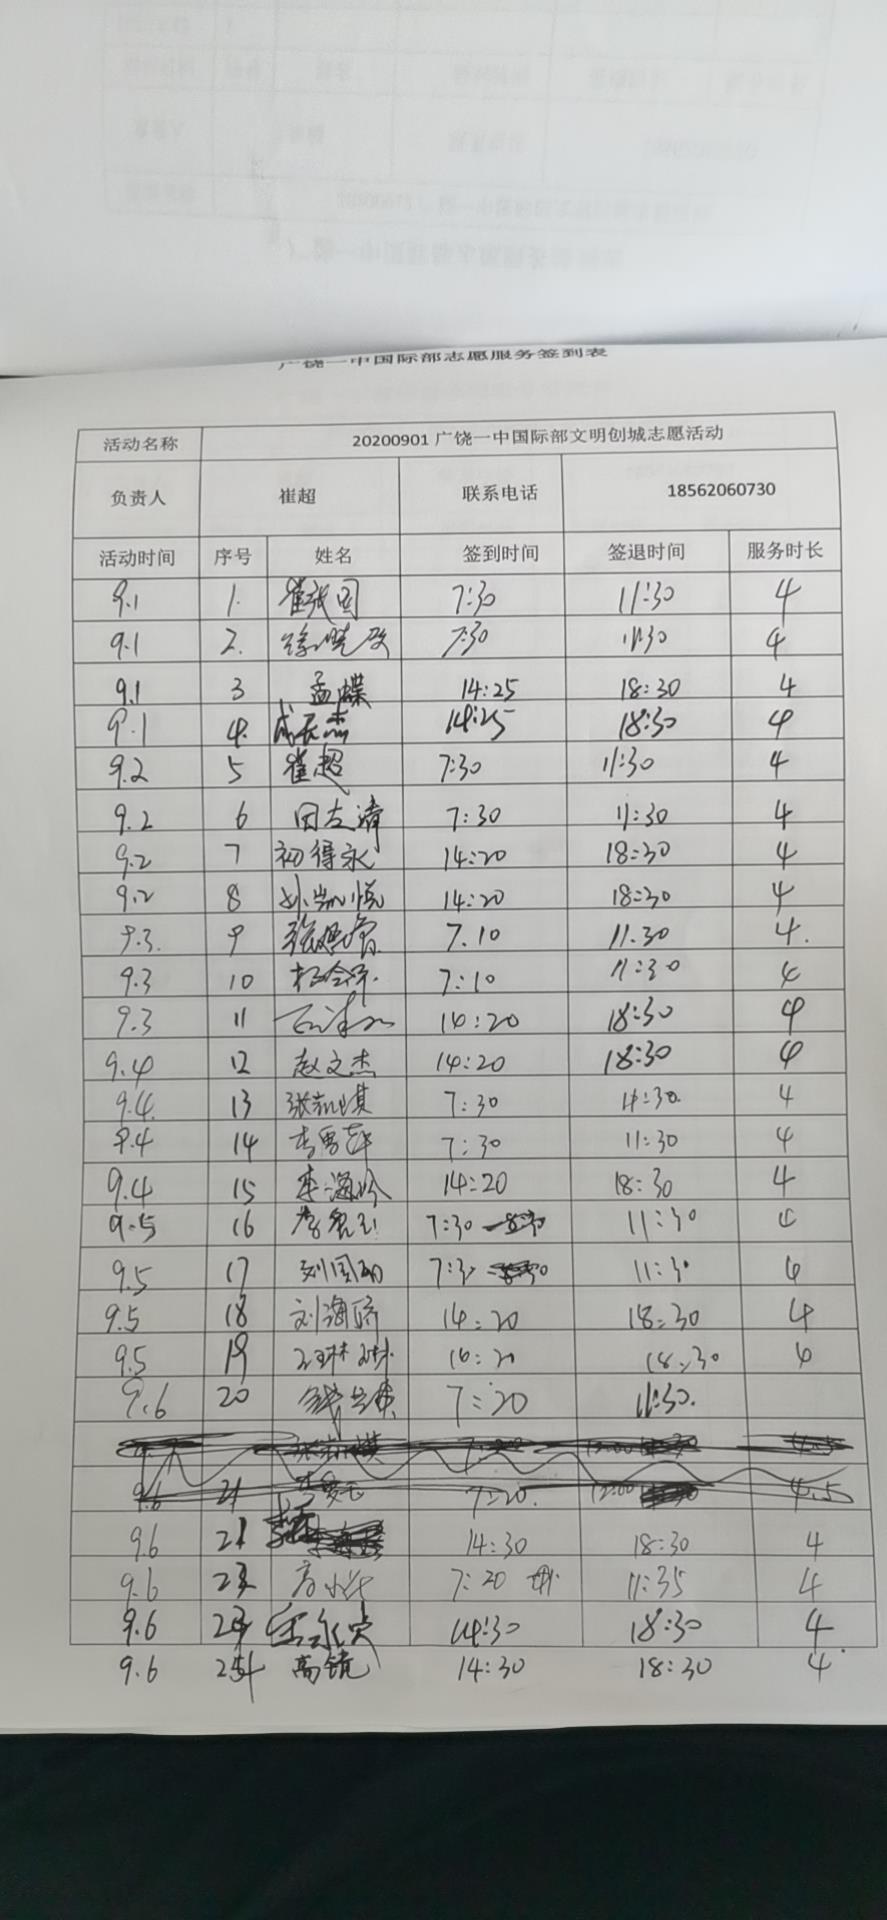 广饶一中国际部志愿服务签到表
活动名称 20200901 广饶一中国际部文明创城志愿活动
负责人 崔超 联系电话 18562060730
活动时间 序号 姓名 签到时间 签退时间 服务时长
9.1 1. 7:30 11:30 4
9.1 2. 7:30 11:30 4
9.1 3 孟蝶 14:25 18:30 4
9.1 4. 14:25 18:30 4
9.2 5 崔超 7:30 11:30 4
9.2 6 7:30 11:30 4
9.2 7 初得永 14:20 18:30 4
9.2 8 孙凯悦 14:20 18:30 4
9.3. 9 7.10 11.30 4.
9.3 10 7:10 11:30 4
9.3 11 14:20 18:30 4
9.4 12 赵文杰 14:20 18:30 4
9.4. 13 张凯琪 7:30 11:30. 4
9.4 14 7:30 11:30 4
9.4 15 李海玲 14:20 18:30 4
9.5 16 7:30 11:30 4
9.5 17 7:30 11:30 4
9.5 18 刘海 14:20 18:30 4
9.5 19 14:20 18:30 4
9.6 20 7:20 11:30.
9.6 21 7:20. 12:00 4.5
9.6 21 14:30 18:30 4
9.6 7:20 11:35 4
9.6 14:30 18:30 4
9.6 高锐 14:30 18:30 4.